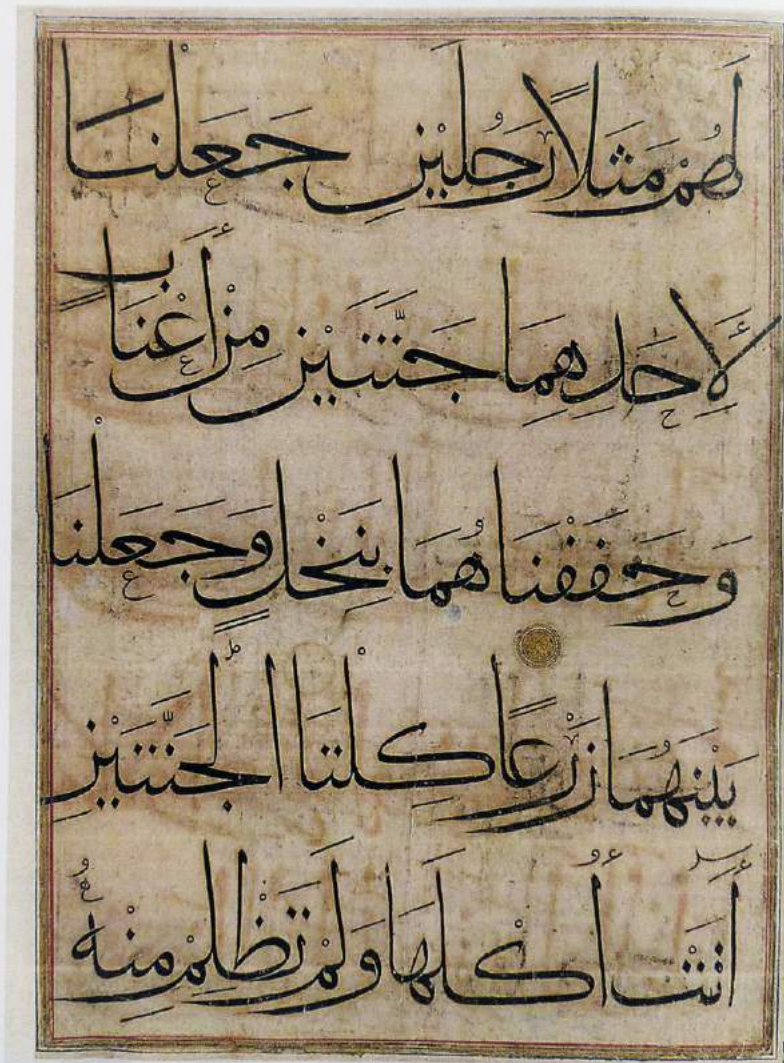 لَهُمْ مَثَلًا رَجُلَيْنِ جَعَلْنَا
لِأَحَدِهِمَا جَنَّتَيْنِ مِنْ أَعْنَابٍ
وَحَفَفْنَاهُمَا بِنَخْلٍ وَجَعَلْنَا
بَيْنَهُمَا زَرْعًا كِلْتَا الْجَنَّتَيْنِ
أَتَتْ أُكُلَهَا وَلَمْ تَظْلِمْ مِنْهُ